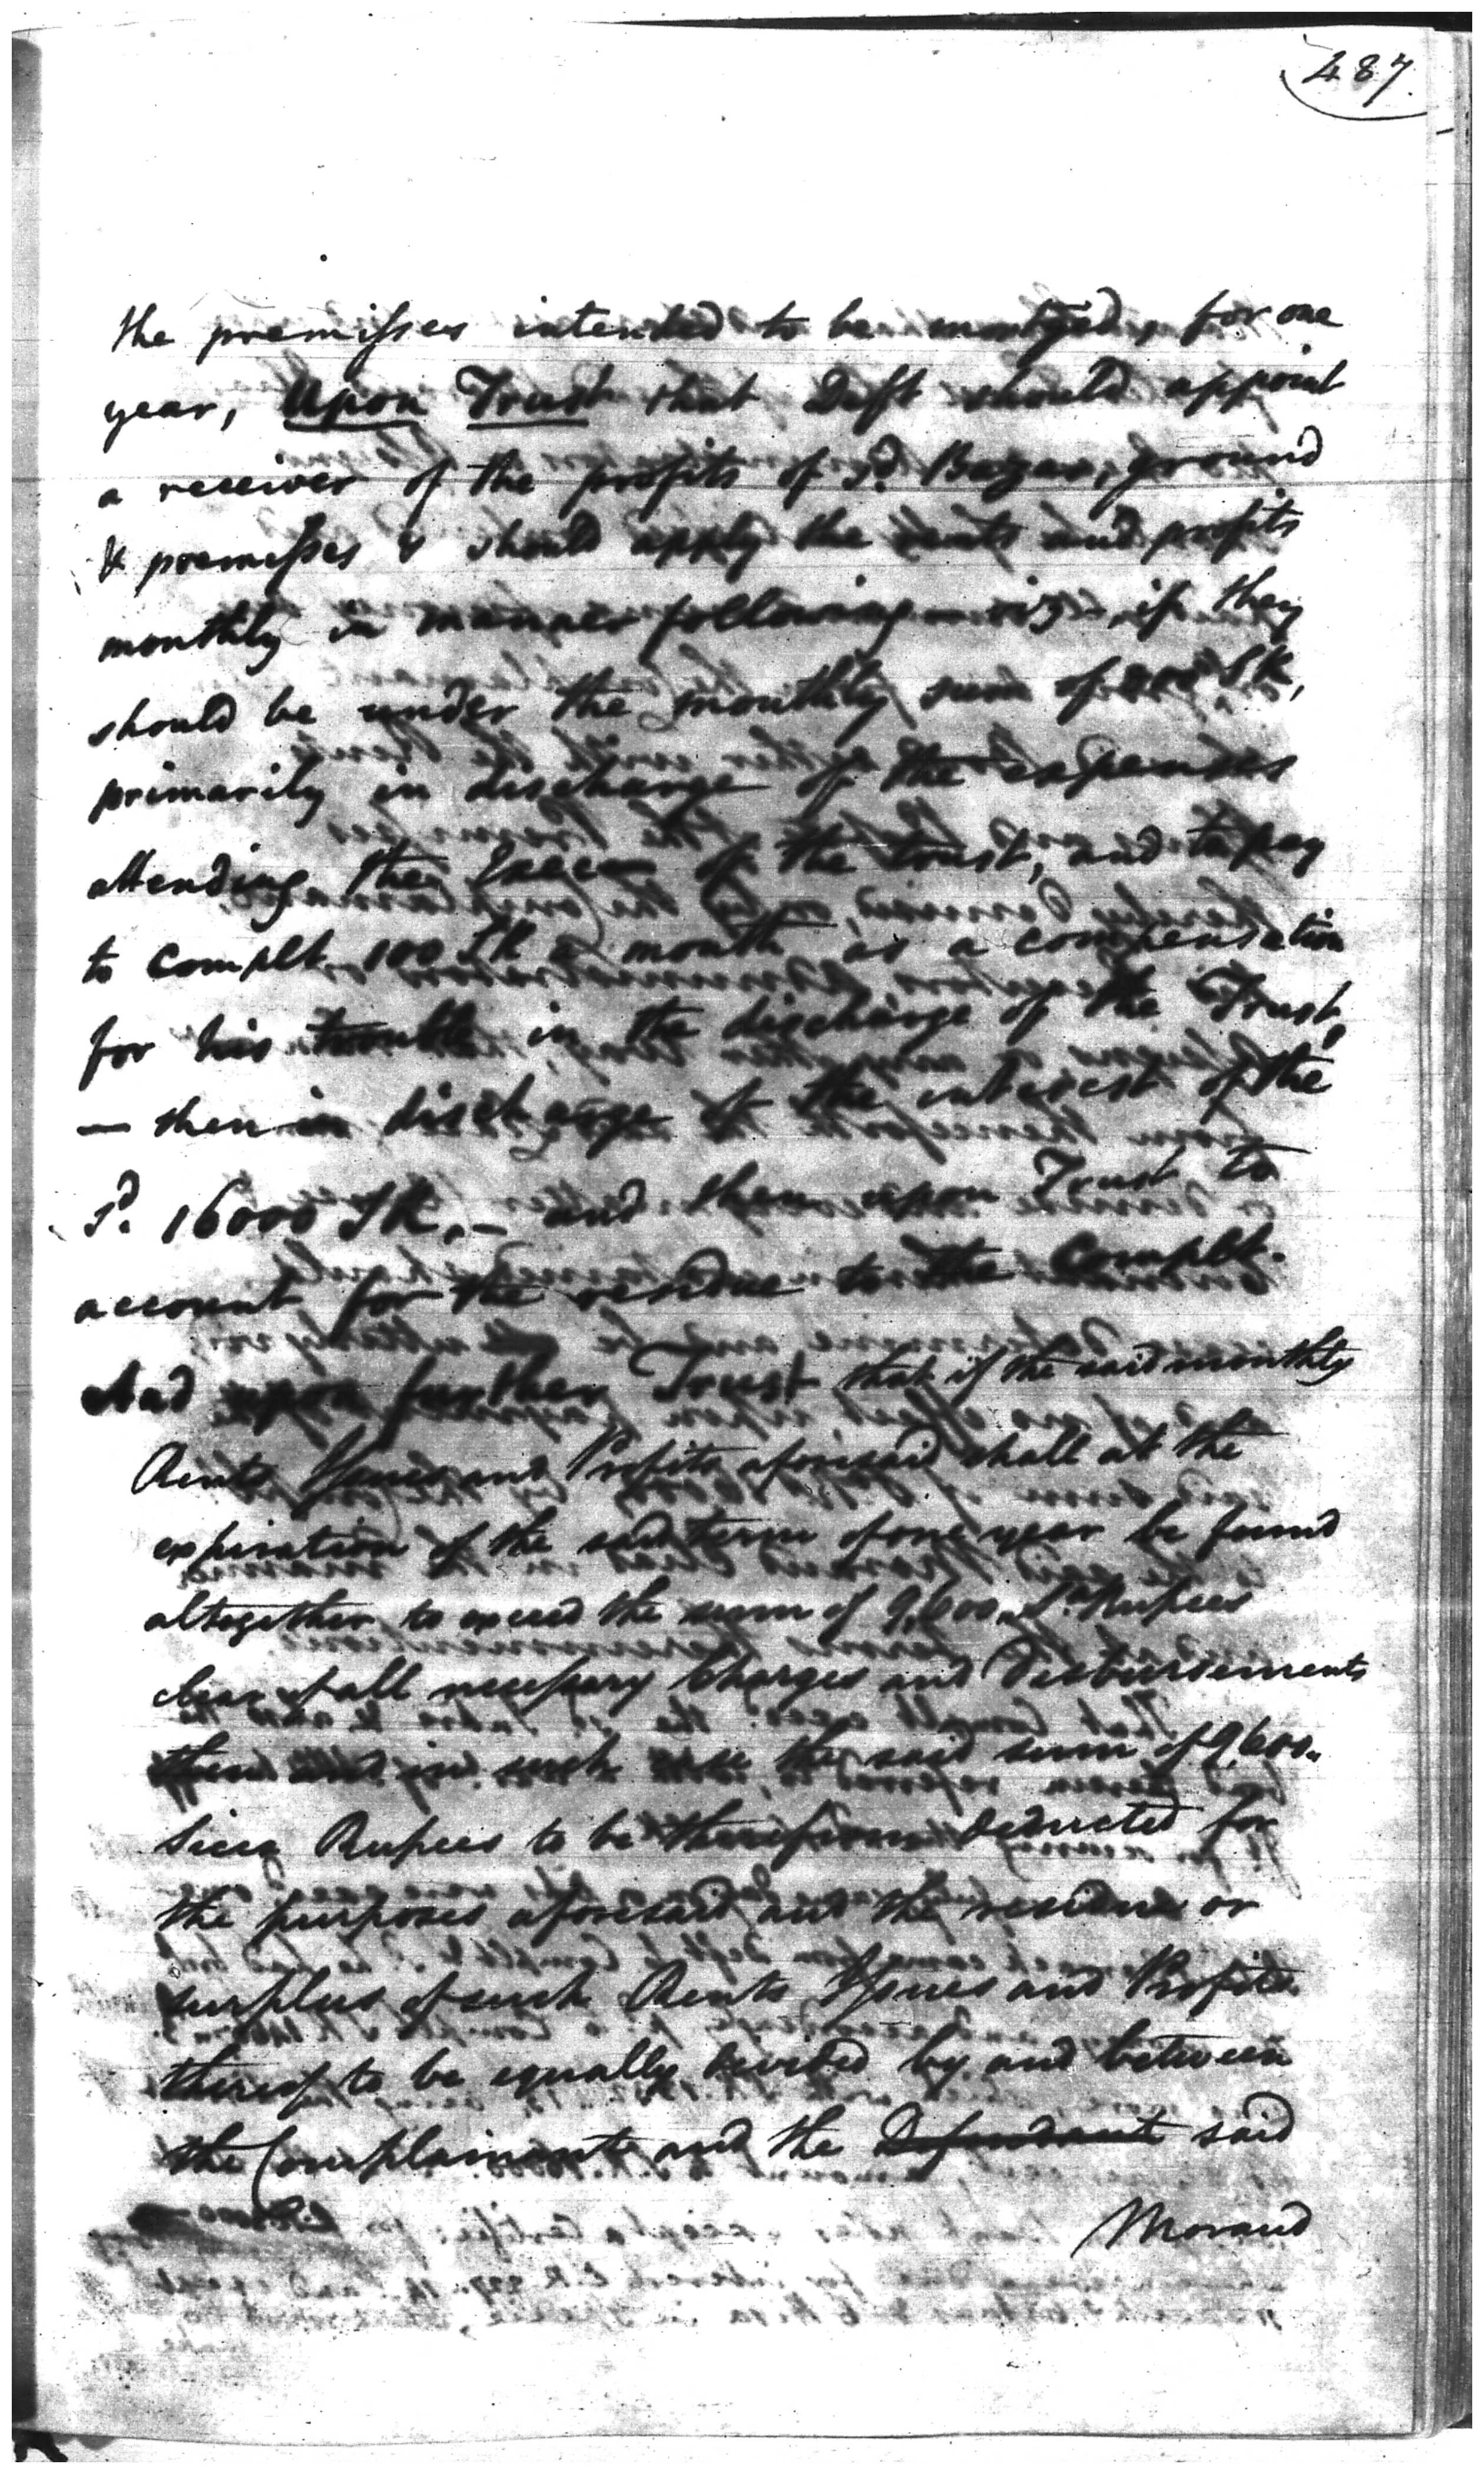 487.
the premisses intended to be mortged, for one
year, Upon Trust that Deft should appoint
a receiver of the profits of sd. Bazar, ground
& premisses & should apply the rents and profits
monthly in manner following – viz – if they
should be under the monthly sum of 800 SR,
primarily in discharge of the expenses
attending the Execon of the trust, and to pay
to Complt 100 SR a month as a compensation
for his trouble in the discharge of the Trust,
— then in discharge of the interest of the
sd. 16000 SR, — and then upon Trust to
account for the residue to the Complt.
And upon further Trust that if the said monthly
Rents Issues and Profits aforesaid shall at the
expiration of the said term of one year be found
altogether to exceed the sum of 9,600 Sa. Rupees
clear of all necessary Charges and Disbursements
then in such case the said sum of 9,600
Sicca Rupees to be therefrom deducted for
the purposes aforesaid and the residue or
surplus of such Rents Issues and Profits
thereof to be equally divided by and between
the Complainants and the Defendant said
Morand